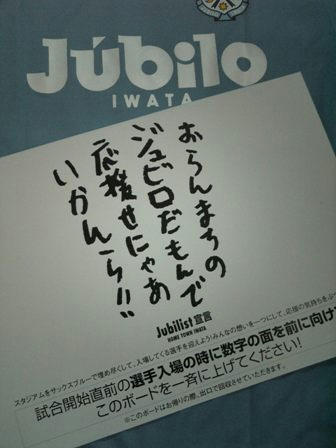 Júbilo
IWATA
おらんまちの
ジュビロだもんで
応援せにゃあ
いかんら!!
Jubilist宣言
HOME TOWN IWATA
スタジアムをサックスブルーで埋め尽くして、入場してくる選手を迎えよう!みんなの想いを一つにして、応援の気持ちを
試合開始直前の選手入場の時に数字の面を前に向け
このボードを一斉に上げてください!
※このボードはお帰りの際、出口で回収させていただきます。